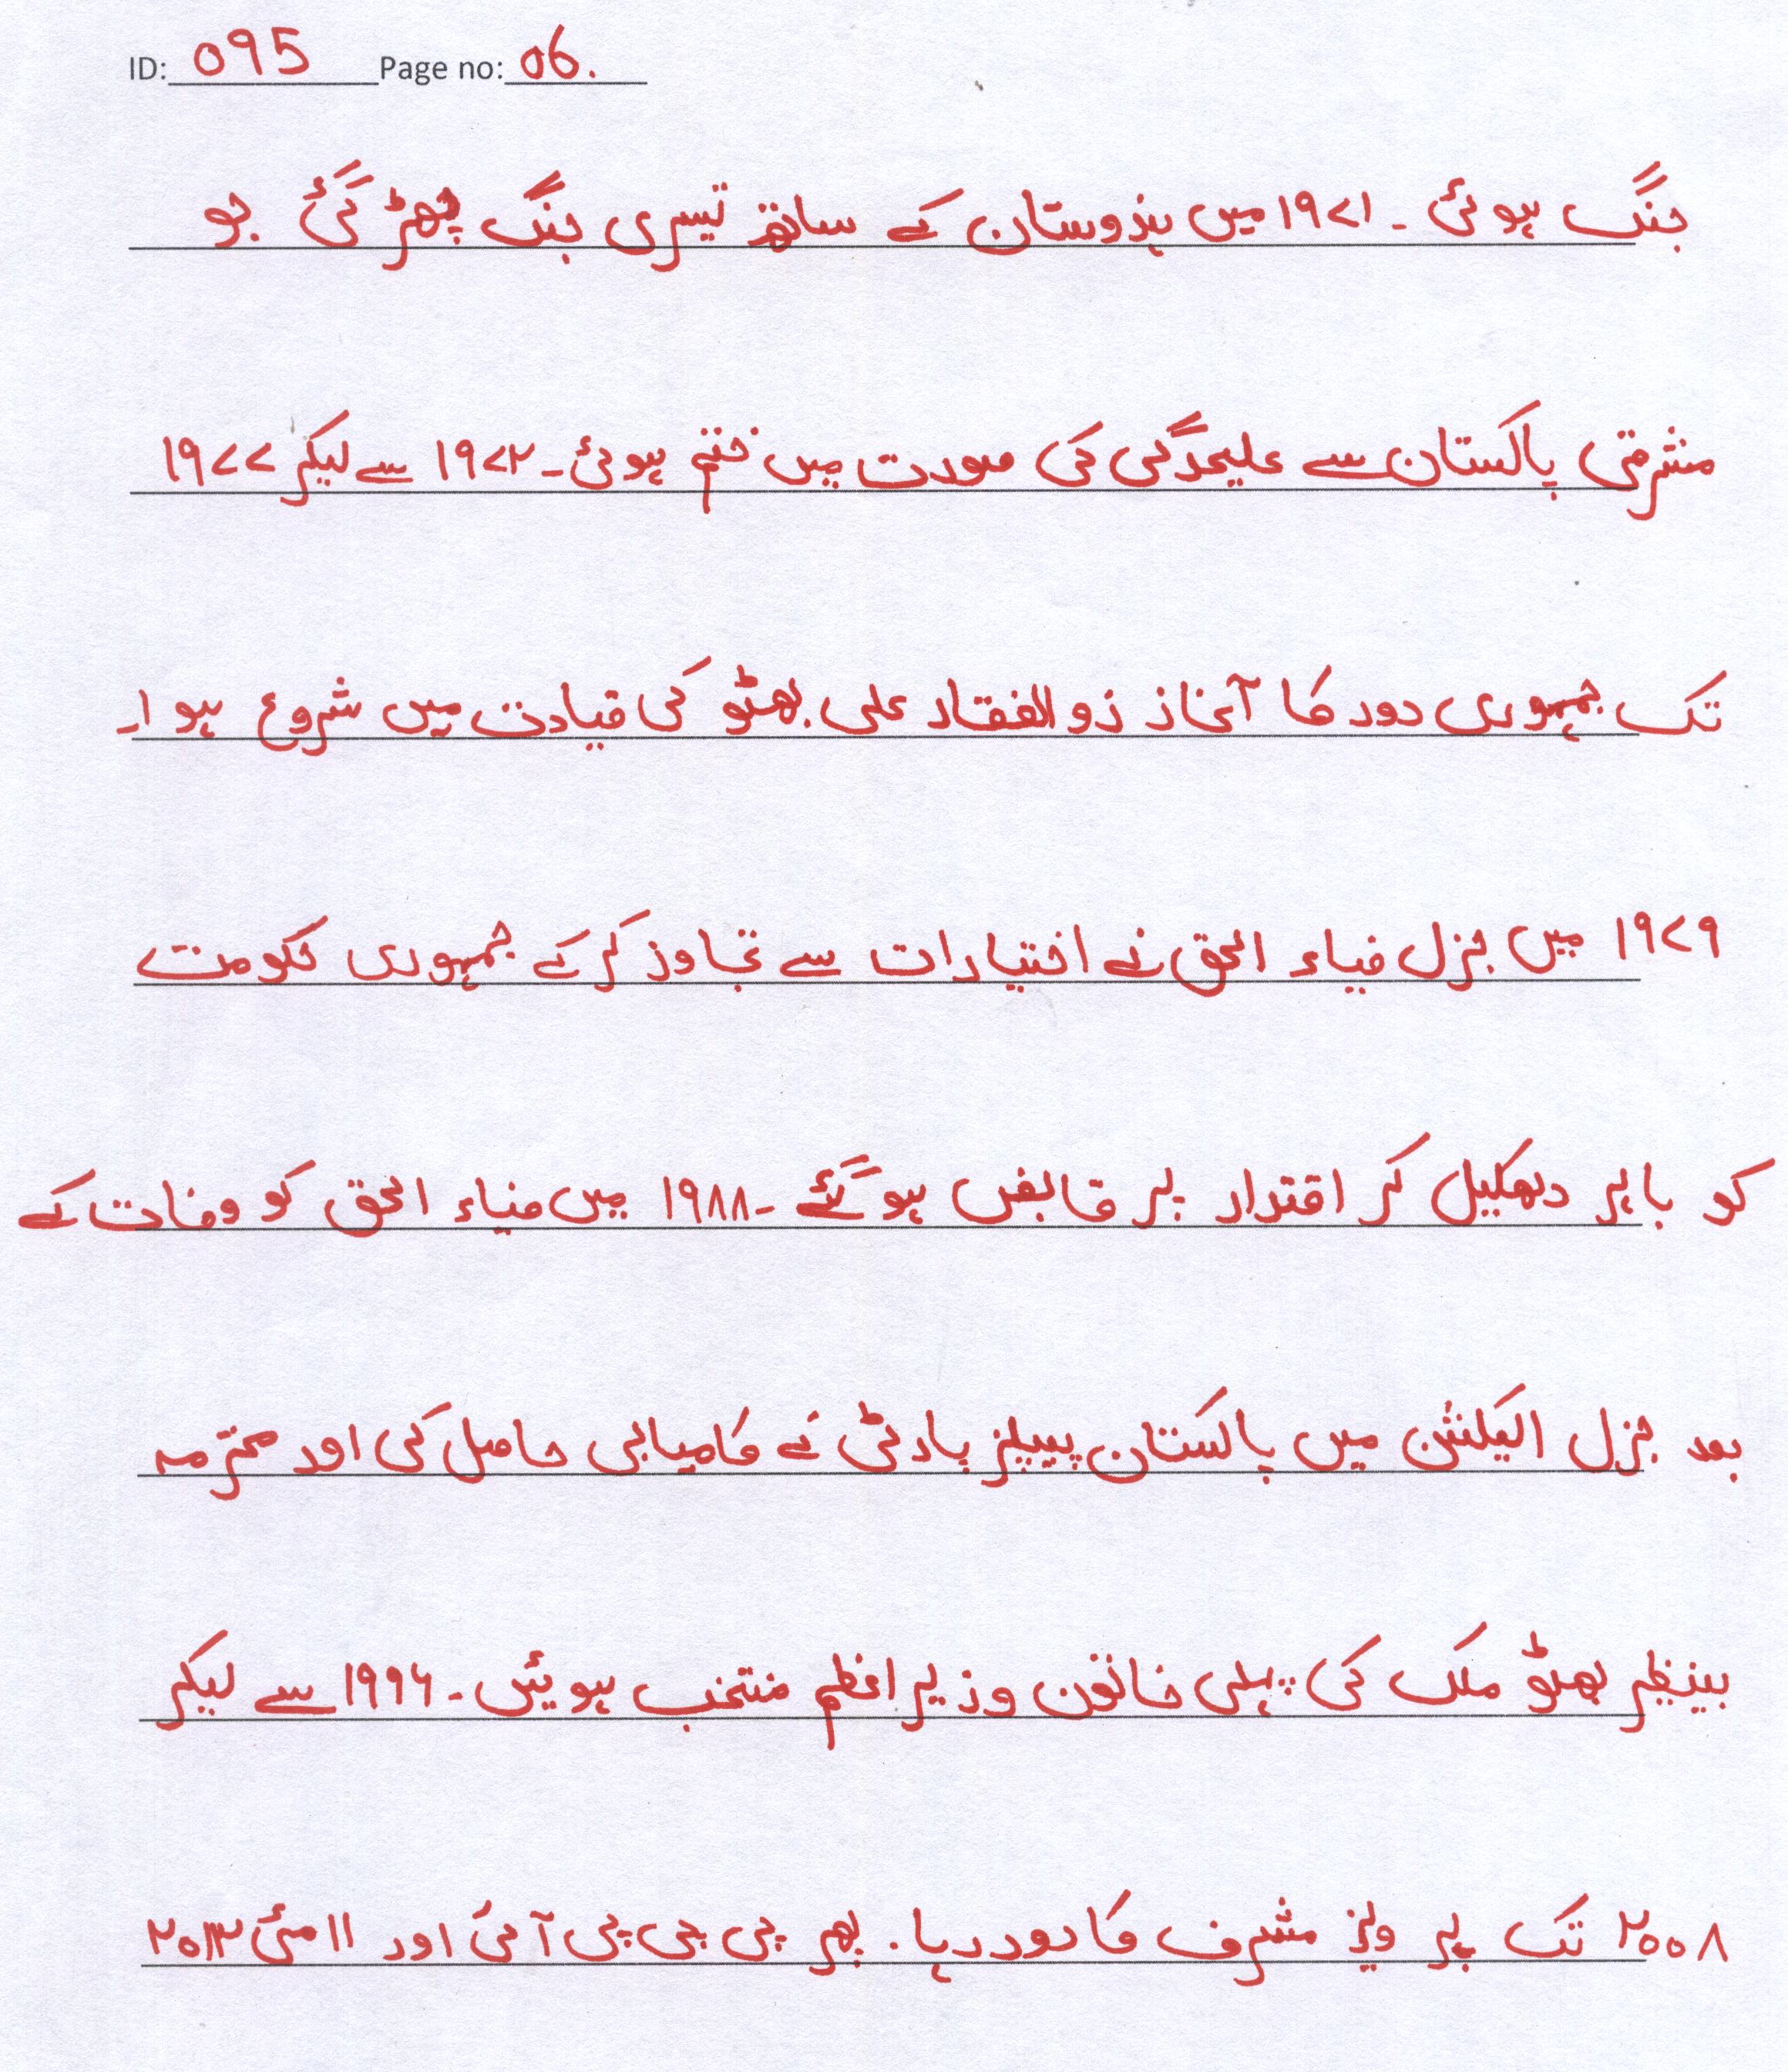 ID: 095 Page no: 06.
جنگ ہوئی ۔ ۱۹۷۱ میں ہندوستان کے ساتھ تیسری جنگ چھڑ گئی جو
مشرقی پاکستان سے علیحدگی کی صورت میں ختم ہوئی۔ ۱۹۷۲ سے لیکر ۱۹۷۷
تک جمہوری دور کا آغاز ذوالفقار علی بھٹو کی قیادت میں شروع ہوا۔
۱۹۷۹ میں جنرل ضیاء الحق نے اختیارات سے تجاوز کر کے جمہوری حکومت
کو باہر دھکیل کر اقتدار پر قابض ہو گئے ۔ ۱۹۸۸ میں ضیاء الحق کو وفات کے
بعد جنرل الیکشن میں پاکستان پیپلز پارٹی نے کامیابی حاصل کی اور محترمہ
بینظیر بھٹو ملک کی پہلی خاتون وزیر اعظم منتخب ہویئں ۔ ۱۹۹۶ سے لیکر
۲۰۰۸ تک پرویز مشرف کا دور رہا۔ پھر پی پی پی آئی اور ۱۱ مئی ۲۰۱۳